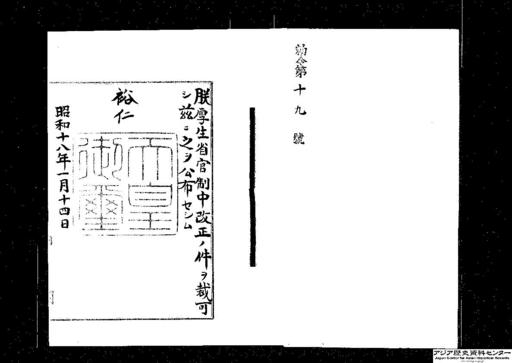 勅令第十九號
朕厚生省官制中改正ノ件ヲ裁可
シ茲ニ之ヲ公布セシム
裕仁
天皇御璽
昭和十八年一月十四日
アジア歴史資料センター
Japan Center for Asian Historical Records